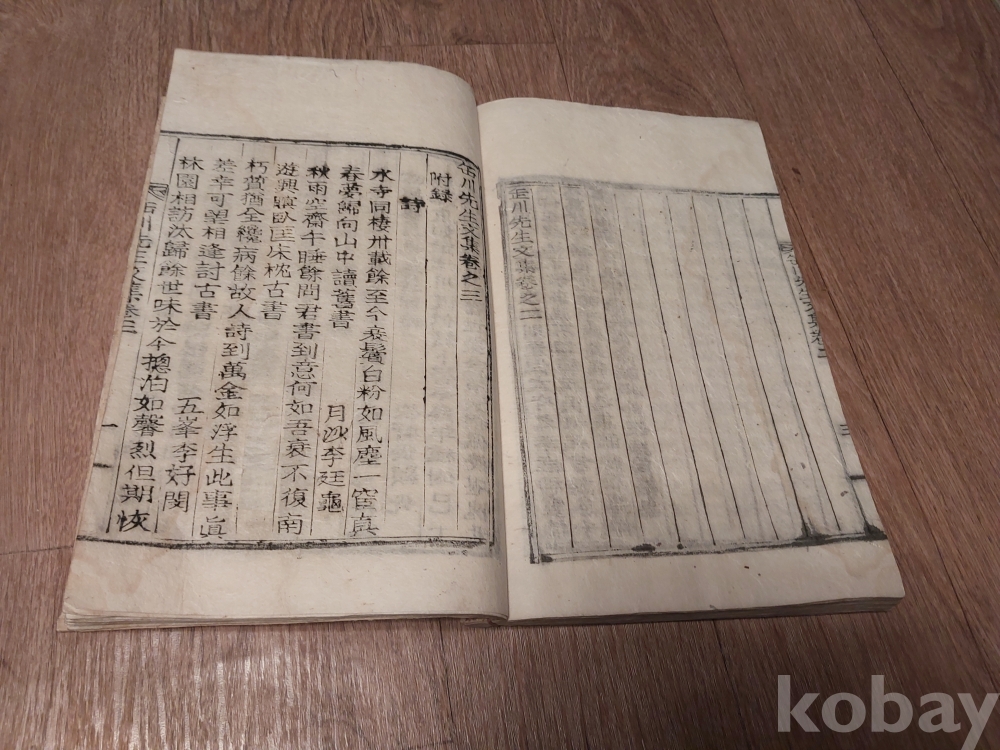 川先生文集卷二
川先生文集卷之二
川先生文集卷之三
附録
詩
水寺同棲卅載餘至今衰鬢白粉如風塵一宦真
春夢歸向山中讀舊書 月沙李廷龜
秋雨空齋午睡餘問君書到意何如吾衰不復南
遊興臥匡床枕古書
朽猶全纔病餘故人詩到萬金如浮生此事眞
差幸可望相逢討古書 五峯李好閔
林園相訪汰歸餘世味於今摠泊如馨烈但期恢
川先生文集卷三 一
kobay